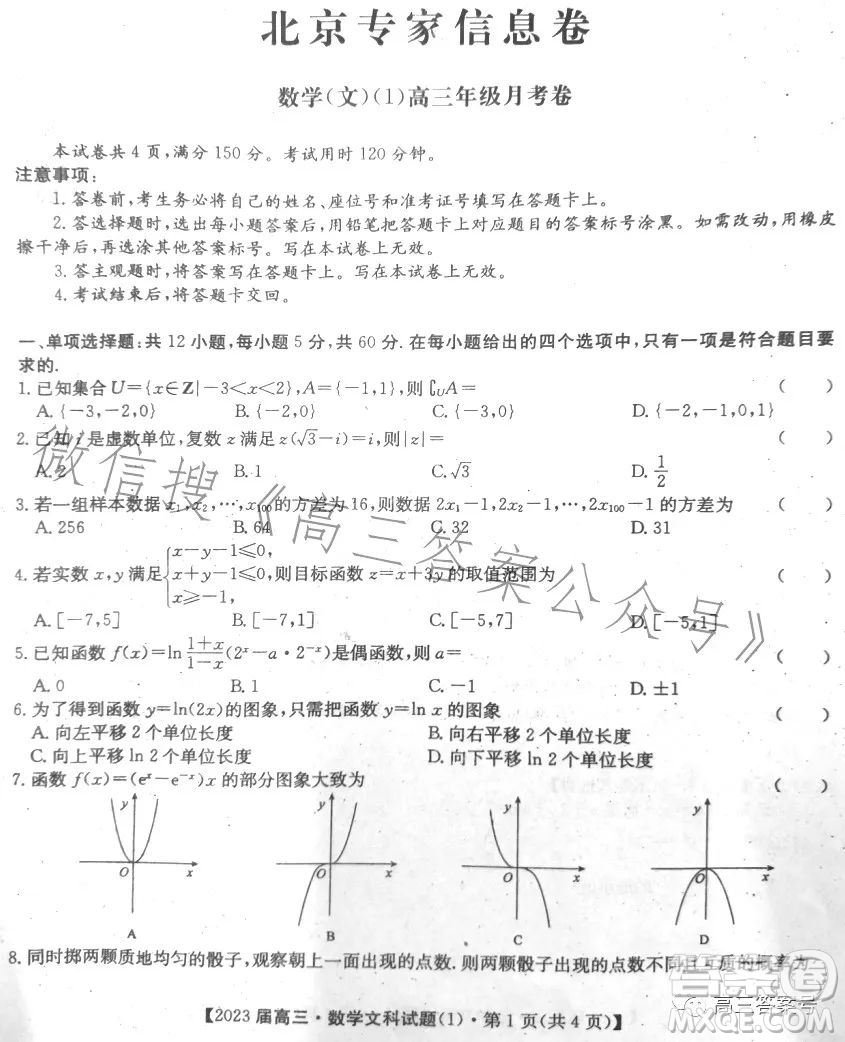 北京专家信息卷
数学(文)(1)高三年级月考卷
本试卷共4页,满分150分。考试用时120分钟。
注意事项:
1.答卷前,考生务必将自己的姓名、座位号和准考证号填写在答题卡上。
2.答选择题时,选出每小题答案后,用铅笔把答题卡上对应题目的答案标号涂黑。如需改动,用橡皮
擦干净后,再选涂其他答案标号。写在本试卷上无效。
3.答主观题时,将答案写在答题卡上。写在本试卷上无效。
4.考试结束后,将答题卡交回。
一、单项选择题:共12小题,每小题5分,共60分.在每小题给出的四个选项中,只有一项是符合题目要
求的.
1.已知集合U={x∈Z|-3<x<2},A={-1,1},则∁UA= ( )
A.{-3,-2,0} B.{-2,0} C.{-3,0} D.{-2,-1,0,1}
2.已知i是虚数单位,复数z满足z(√3-i)=i,则|z|= ( )
A.2 B.1 C.√3 D.1/2
3.若一组样本数据x₁,x₂,…,x₁₀₀的方差为16,则数据2x₁-1,2x₂-1,…,2x₁₀₀-1的方差为 ( )
A.256 B.64 C.32 D.31
4.若实数x,y满足{x-y-1≤0, x+y-1≤0, x≥-1,则目标函数z=x+3y的取值范围为 ( )
A.[-7,5] B.[-7,1] C.[-5,7] D.[-5,1]
5.已知函数f(x)=ln (1+x)/(1-x) (2ˣ-a·2⁻ˣ)是偶函数,则a= ( )
A.0 B.1 C.-1 D.±1
6.为了得到函数y=ln(2x)的图象,只需把函数y=ln x的图象 ( )
A.向左平移2个单位长度 B.向右平移2个单位长度
C.向上平移ln 2个单位长度 D.向下平移ln 2个单位长度
7.函数f(x)=(eˣ-e⁻ˣ)x的部分图象大致为 ( )
y y y y
O x O x O x O x
A B C D
8.同时掷两颗质地均匀的骰子,观察朝上一面出现的点数.则两颗骰子出现的点数不同且互质的概率为
【2023届高三·数学文科试题(1)·第1页(共4页)】
微信搜《高三答案公众号》
高三答案号
答案圈
MXQE.COM